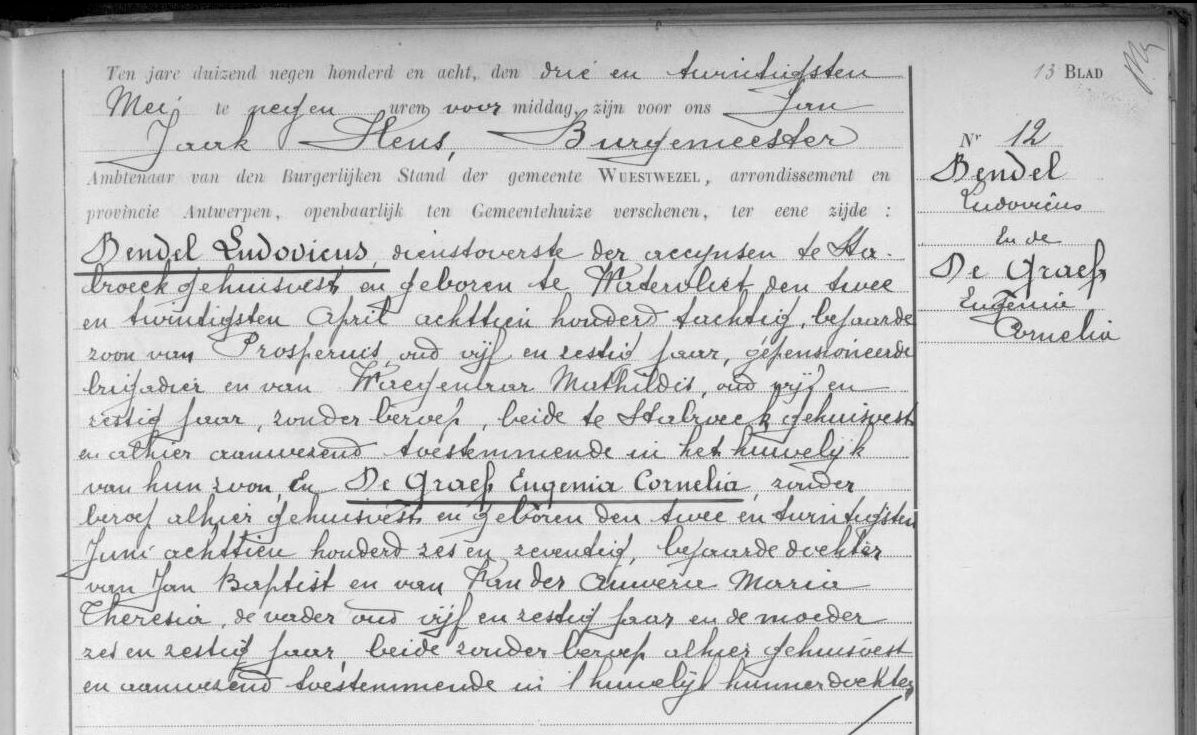 13 BLAD
Ten jare duizend negen honderd en acht, den drie en twintigsten
Mei te negen uren voor middag, zijn voor ons Jan
Jaak Hens, Burgemeester
Ambtenaar van den Burgerlijken Stand der gemeente WUESTWEZEL, arrondissement en
provincie Antwerpen, openbaarlijk ten Gemeentehuize verschenen, ter eene zijde :
Bendel Ludovicus, dienstoverste der accynsen te Sta-
broeck gehuisvest en geboren te Watervliet den twee
en twintigsten April achttien honderd tachtig, bejaarde
zoon van Prosperus, oud vijf en zestig jaar, gepensioneerde
brigadier en van Waegenaar Mathildis, oud vijf en
zestig jaar, zonder beroep, beide te Stabroeck gehuisvest
en alhier aanwezend toestemmende in het huwelijk
van hun zoon, En De Graef Eugenia Cornelia, zonder
beroep alhier gehuisvest en geboren den twee en twintigsten
Juni achttien honderd zes en zeventig, bejaarde dochter
van Jan Baptist en van Van der Auwera Maria
Theresia, de vader oud vijf en zestig jaar en de moeder
zes en zestig jaar, beide zonder beroep alhier gehuisvest
en aanwezend toestemmende in 't huwelijk hunner dochter,
Nr 12
Bendel
Ludovicus
En de
De Graef
Eugenia
Cornelia